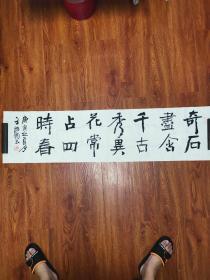 奇石
盡含
千古
秀異
花常
占四
時春